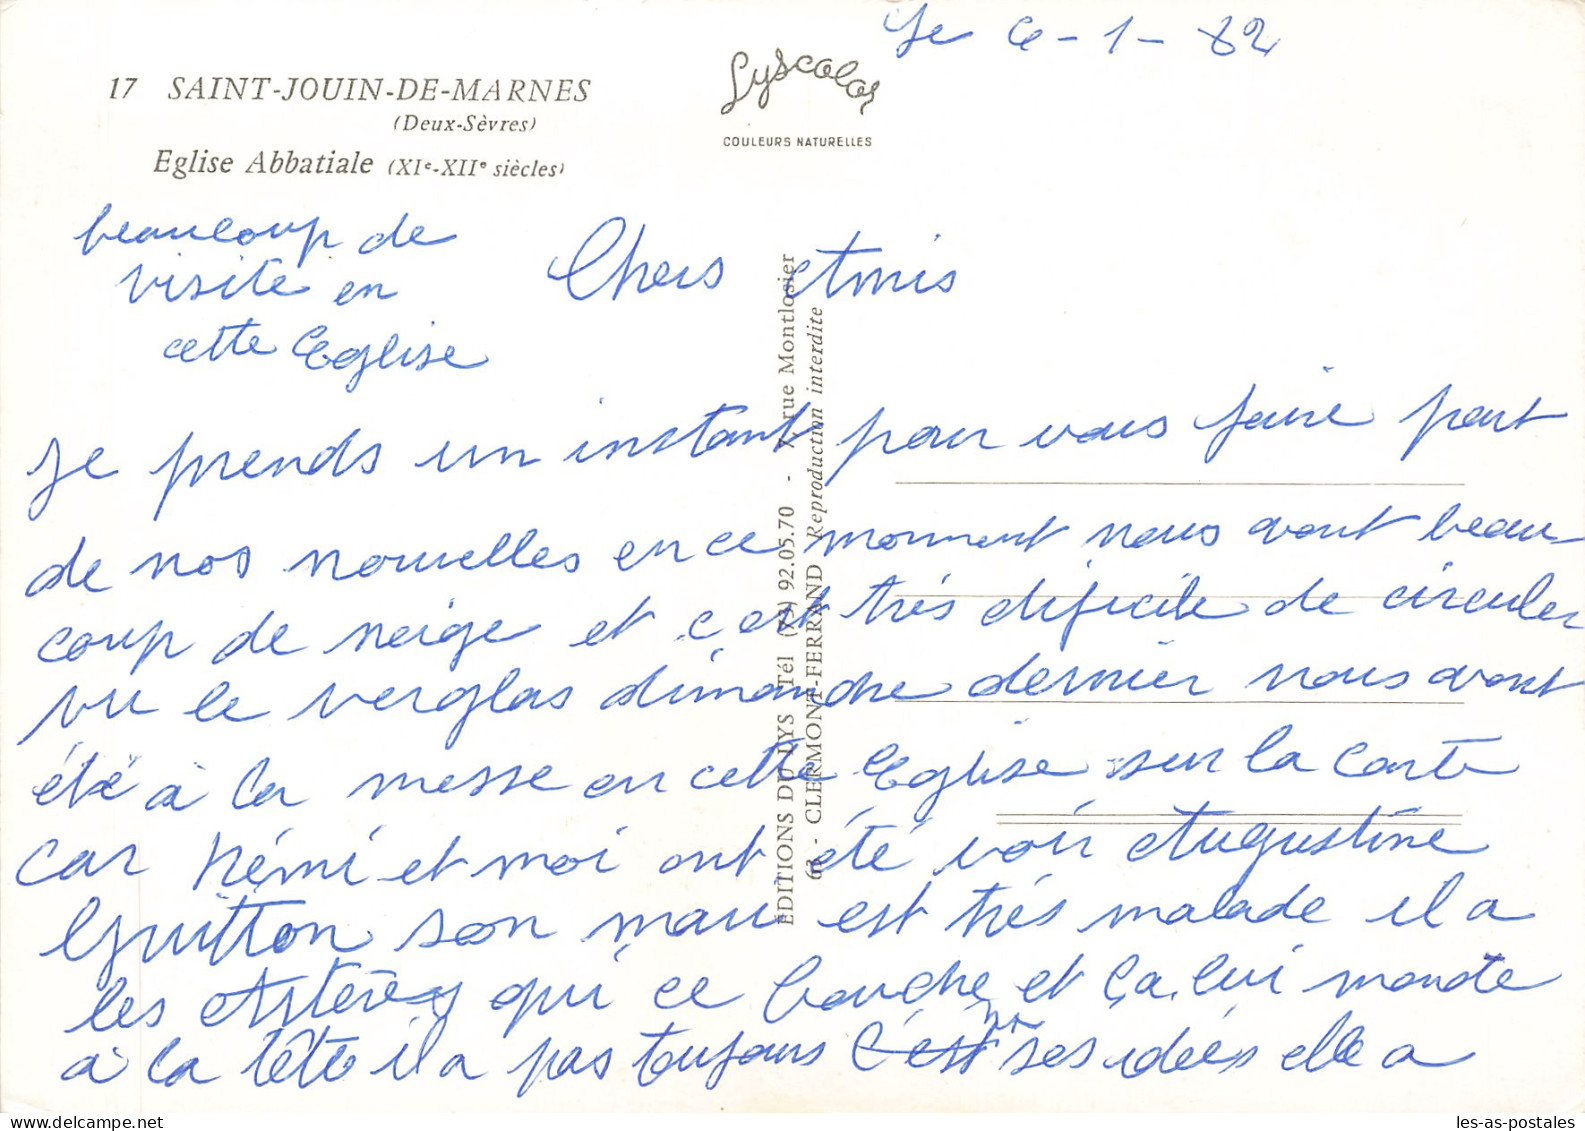 le 4-1-82
17 SAINT-JOUIN-DE-MARNES
(Deux-Sèvres)
Eglise Abbatiale (XIe-XIIe siècles)
Lyscolor
COULEURS NATURELLES
beaucoup de
visite en
cette Eglise
Chers Amis
je prends un instant pour vous faire part
de nos nouvelles en ce moment nous avont beau-
coup de neige et c'est très dificile de circuler
vu le verglas dimanche dernier nous avont
été à la messe en cette Eglise sur la carte
car Rémi et moi ont été voir Augustine
Guitton son mari est très malade il a
les Artères qui ce bouche et ça lui monte
à la tête il a pas toujours ses idées elle a
EDITIONS DU LYS Tél (73) 92.05.70 - 7, rue Montlosier
63 - CLERMONT-FERRAND Reproduction interdite
les-as-postales